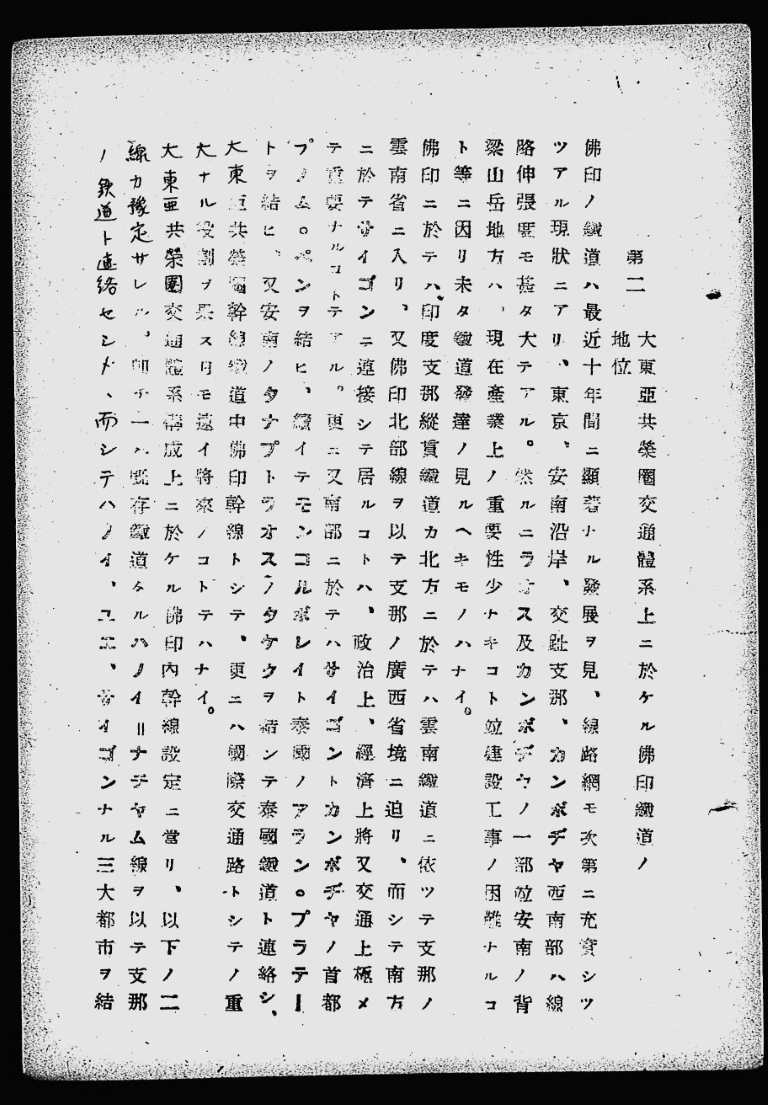 第二
大東亞共榮圈交通體系上ニ於ケル佛印鐵道ノ
地位
佛印ノ鐵道ハ最近十年間ニ顯著ナル發展ヲ見、線路網モ次第ニ充實シツ
ツアル現狀ニアリ、東京、安南沿岸、交趾支那、カンボヂヤ西南部ハ線
路伸張度モ甚タ大テアル。然ルニラオス及カンボヂヤノ一部竝安南ノ背
梁山岳地方ハ、現在產業上ノ重要性少ナキコト竝建設工事ノ困難ナルコ
ト等ニ因リ未タ鐵道發達ノ見ルヘキモノハナイ。
佛印ニ於テハ印度支那縱貫鐵道カ北方ニ於テハ雲南鐵道ニ依ツテ支那ノ
雲南省ニ入リ、又佛印北部線ヲ以テ支那ノ廣西省境ニ迫リ、而シテ南方
ニ於テサイゴンニ連接シテ居ルコトハ、政治上、經濟上將又交通上極メ
テ重要ナルコトテアル。更ニ又南部ニ於テハサイゴントカンボヂヤノ首都
プノム。ペンヲ結ヒ、續イテモンコルボレイト泰國ノアラン。プラテー
トヲ結ヒ、又安南ノタナプトラオスノタケクヲ結シテ泰國鐵道ト連絡シ、
大東亞共榮圈幹線鐵道中佛印幹線トシテ、更ニハ國際交通路トシテノ重
大ナル役割ヲ果ス日モ遠イ將來ノコトテハナイ。
大東亞共榮圈交通體系構成上ニ於ケル佛印內幹線設定ニ當リ、以下ノ二
線カ豫定サレル、卽チ一ハ旣存鐵道タルハノイ=ナチヤム線ヲ以テ支那
ノ鉄道ト連絡セシメ、而シテハノイ、ユエ、サイゴンナル三大都市ヲ結